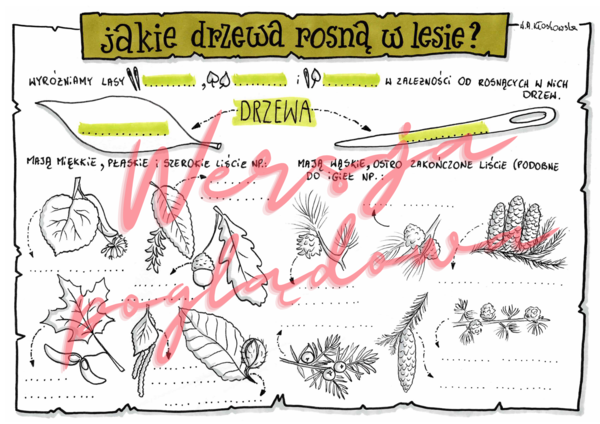 jakie drzewa rosną w lesie?
A. Kłosłowska
WYRÓŻNIAMY LASY , i W ZALEŻNOŚCI OD ROSNĄCYCH W NICH
DRZEW.
DRZEWA
MAJĄ MIĘKKIE, PŁASKIE I SZEROKIE LIŚCIE NP.:
MAJĄ WĄSKIE, OSTRO ZAKOŃCZONE LIŚCIE (PODOBNE
DO IGIEŁ NP.:
Wersja
poglądowa